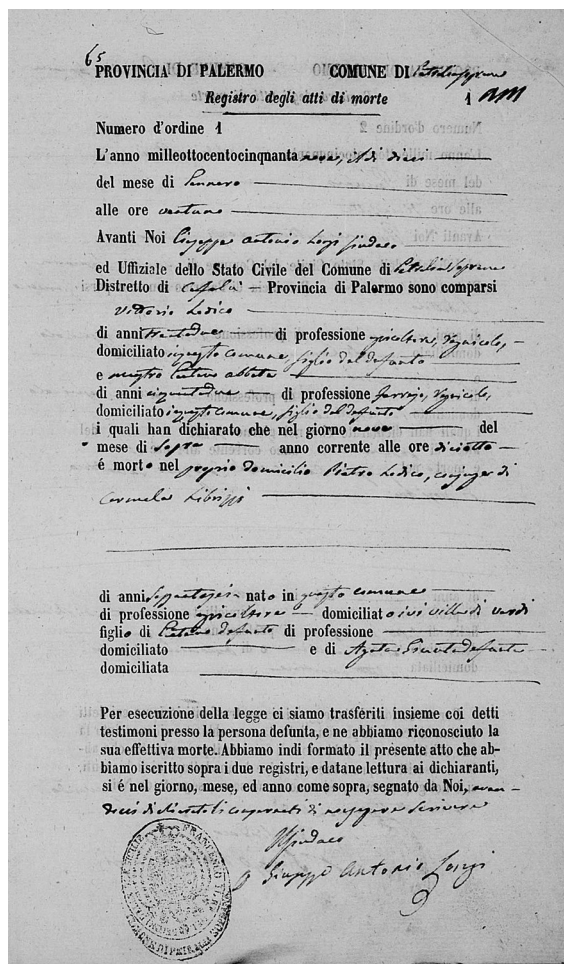 65
PROVINCIA DI PALERMO COMUNE DI Petralia soprana
Registro degli atti di morte 1
Numero d'ordine 1
L'anno milleottocentocinquanta nove, il dì dieci
del mese di Gennaro
alle ore ventuno
Avanti Noi Giuseppe Antonio Longi Sindaco
ed Uffiziale dello Stato Civile del Comune di Petralia Soprana
Distretto di Cefalù Provincia di Palermo sono comparsi
Vittorio Lodico
di anni trentadue di professione agricoltore, regnicolo,
domiciliato in questo comune, figlio del defunto
e mastro Gaetano Abbate
di anni cinquantadue di professione ferrajo, regnicolo,
domiciliato in questo comune, figlio del defunto
i quali han dichiarato che nel giorno nove del
mese di Sopra anno corrente alle ore diciotto
é morto nel proprio domicilio Pietro Lodico, conjuge di
Carmela Librizzi
di anni Settantasei nato in questo comune
di professione agricoltore domiciliato ivi villa di verdi
figlio di Gaetano defunto di professione
domiciliato e di Agata defunta
domiciliata
Per esecuzione della legge ci siamo trasferiti insieme coi detti
testimoni presso la persona defunta, e ne abbiamo riconosciuto la
sua effettiva morte. Abbiamo indi formato il presente atto che ab-
biamo iscritto sopra i due registri, e datane lettura ai dichiaranti,
si é nel giorno, mese, ed anno come sopra, segnato da Noi, aven-
di non sapere scrivere
Il Sindaco
Giuseppe Antonio Longi